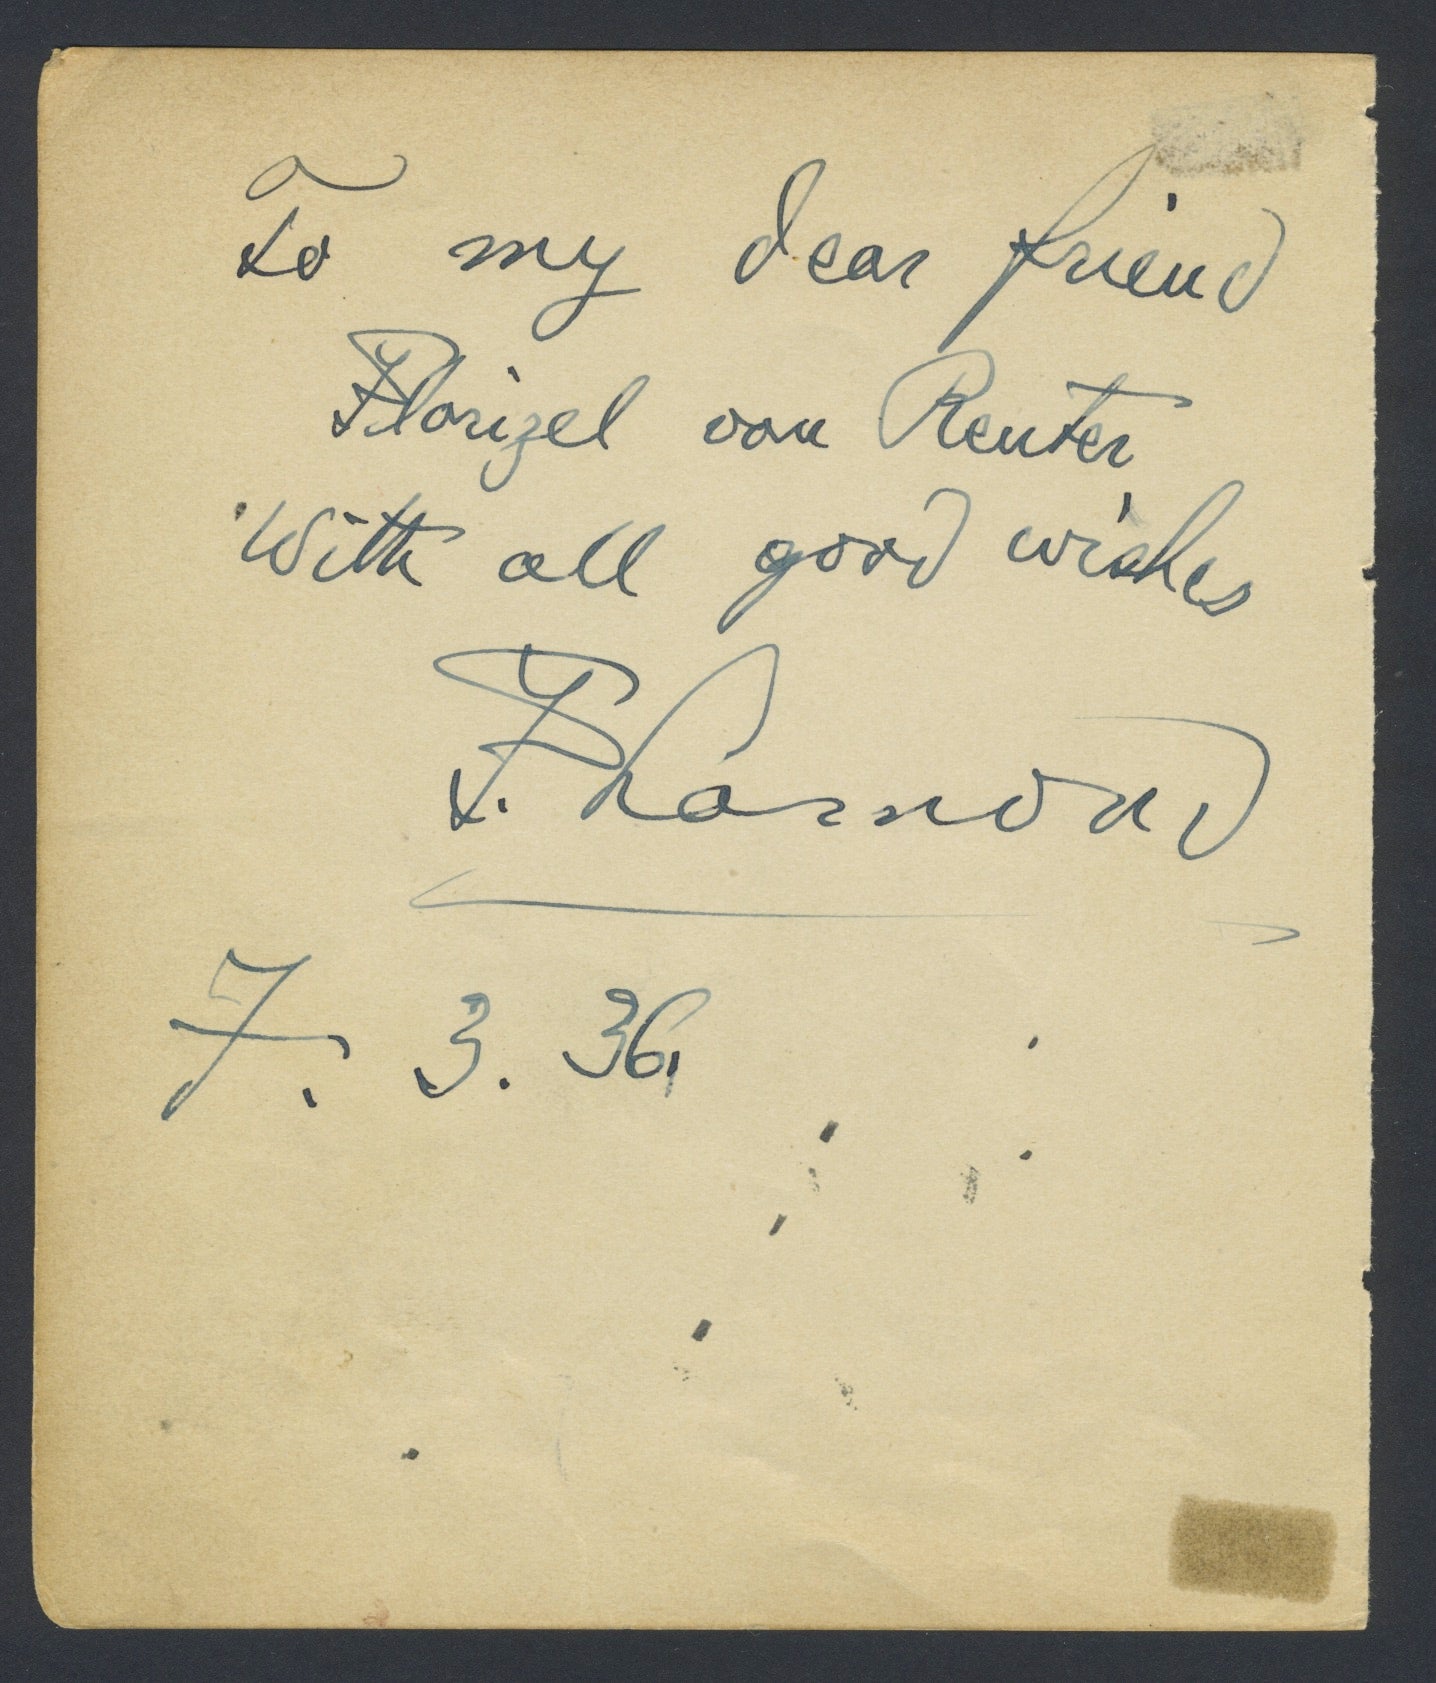 To my dear friend
Florizel von Reuter
With all good wishes
F. Lamond
7. 3. 36.